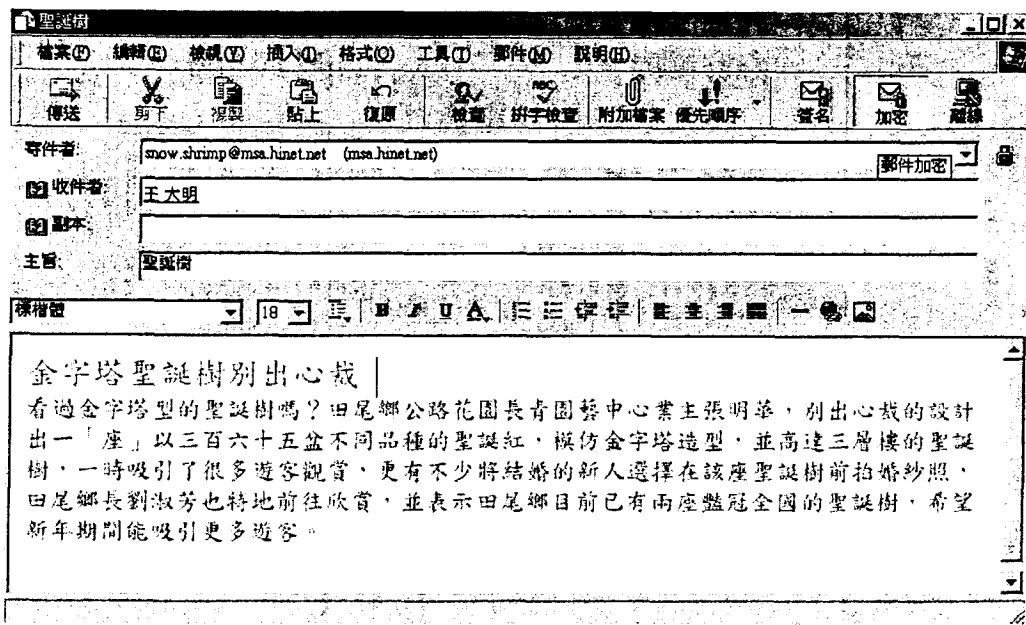 聖誕樹
檔案(F) 編輯(E) 檢視(V) 插入(I) 格式(O) 工具(T) 郵件(M) 說明(H)
傳送 剪下 複製 貼上 復原 檢查 拼字檢查 附加檔案 優先順序 簽名 加密 離線
寄件者: snow.shrimp@msa.hinet.net (msa.hinet.net)
郵件加密
收件者: 王大明
副本:
主旨: 聖誕樹
標楷體 18 B I U A
金字塔聖誕樹別出心裁
看過金字塔型的聖誕樹嗎？田尾鄉公路花園長青園藝中心業主張明華，別出心裁的設計
出一「座」以三百六十五盆不同品種的聖誕紅，模仿金字塔造型，並高達三層樓的聖誕
樹，一時吸引了很多遊客觀賞，更有不少將結婚的新人選擇在該座聖誕樹前拍婚紗照，
田尾鄉長劉淑芳也特地前往欣賞，並表示田尾鄉目前已有兩座豔冠全國的聖誕樹，希望
新年期間能吸引更多遊客。